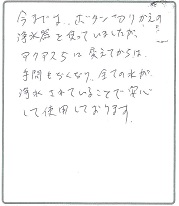 今までは、ボタン切りかえの
浄水器を使っていましたが、
アクアス5に変えてからは、
手間もなくなり、全ての水が
浄水されていることで安心
して使用しております。